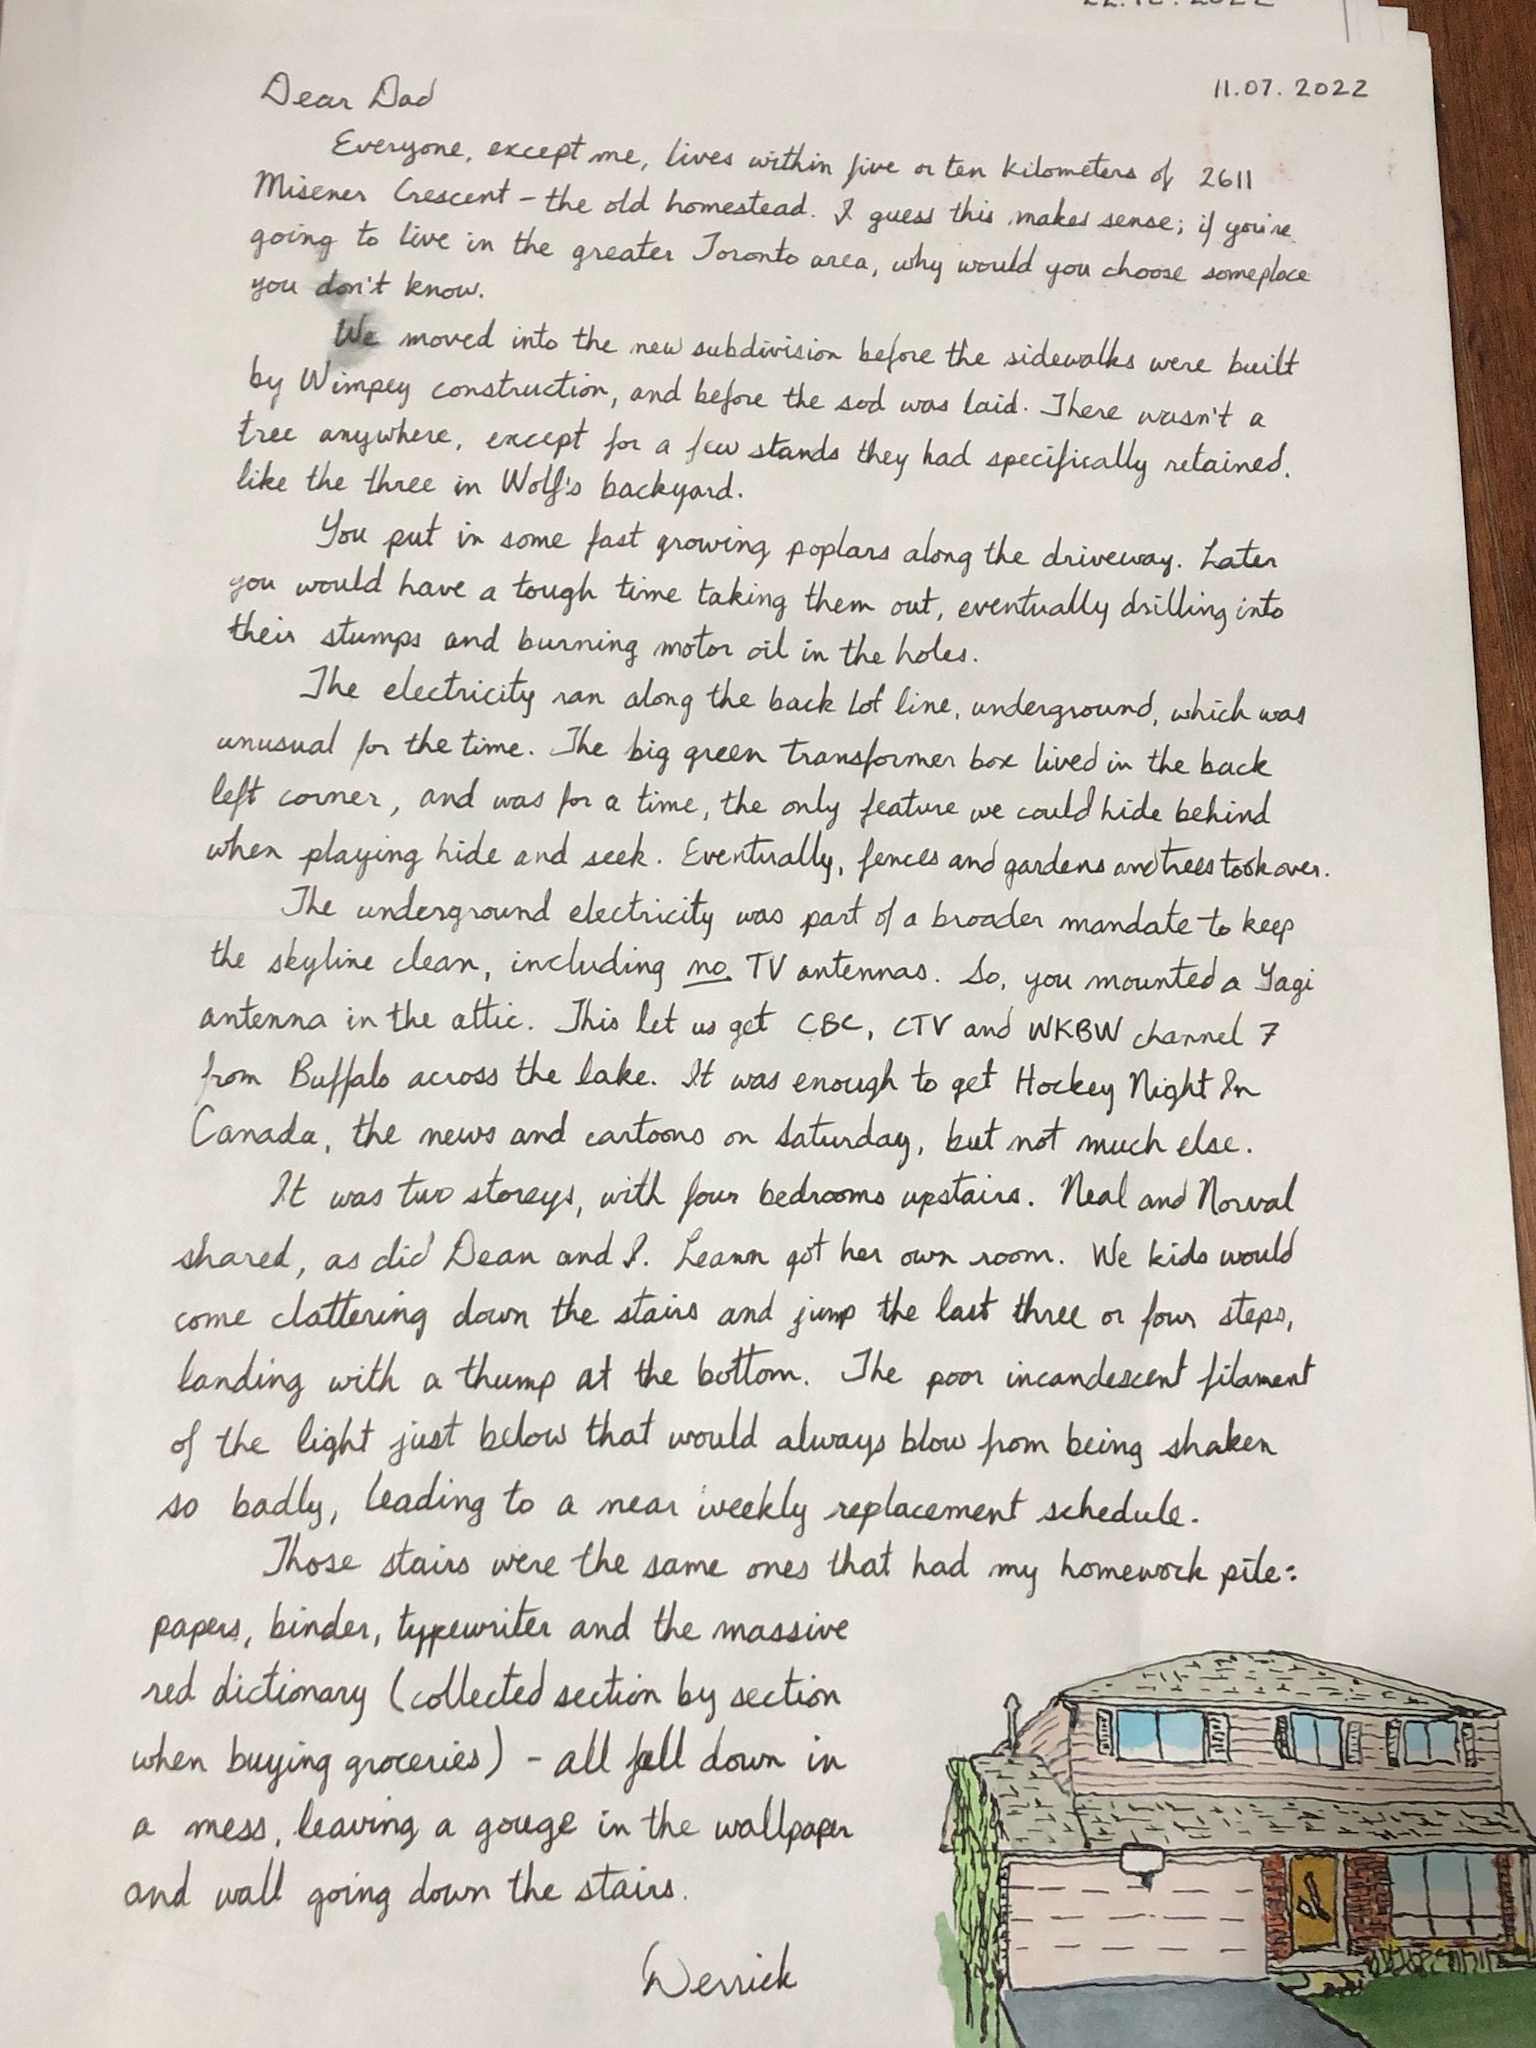 22.12.2022
Dear Dad
11.07.2022
Everyone, except me, lives within five or ten kilometers of 2611
Misener Crescent - the old homestead. I guess this makes sense; if you're
going to live in the greater Toronto area, why would you choose someplace
you don't know.
We moved into the new subdivision before the sidewalks were built
by Wimpey construction, and before the sod was laid. There wasn't a
tree anywhere, except for a few stands they had specifically retained,
like the three in Wolf's backyard.
You put in some fast growing poplars along the driveway. Later
you would have a tough time taking them out, eventually drilling into
their stumps and burning motor oil in the holes.
The electricity ran along the back lot line, underground, which was
unusual for the time. The big green transformer box lived in the back
left corner, and was for a time, the only feature we could hide behind
when playing hide and seek. Eventually, fences and gardens and trees took over.
The underground electricity was part of a broader mandate to keep
the skyline clean, including no TV antennas. So, you mounted a Yagi
antenna in the attic. This let us get CBC, CTV and WKBW channel 7
from Buffalo across the lake. It was enough to get Hockey Night In
Canada, the news and cartoons on Saturday, but not much else.
It was two storeys, with four bedrooms upstairs. Neal and Norval
shared, as did Dean and I. Leann got her own room. We kids would
come clattering down the stairs and jump the last three or four steps,
landing with a thump at the bottom. The poor incandescent filament
of the light just below that would always blow from being shaken
so badly, leading to a near weekly replacement schedule.
Those stairs were the same ones that had my homework pile:
papers, binder, typewriter and the massive
red dictionary (collected section by section
when buying groceries) - all fall down in
a mess, leaving a gouge in the wallpaper
and wall going down the stairs.
Derrick